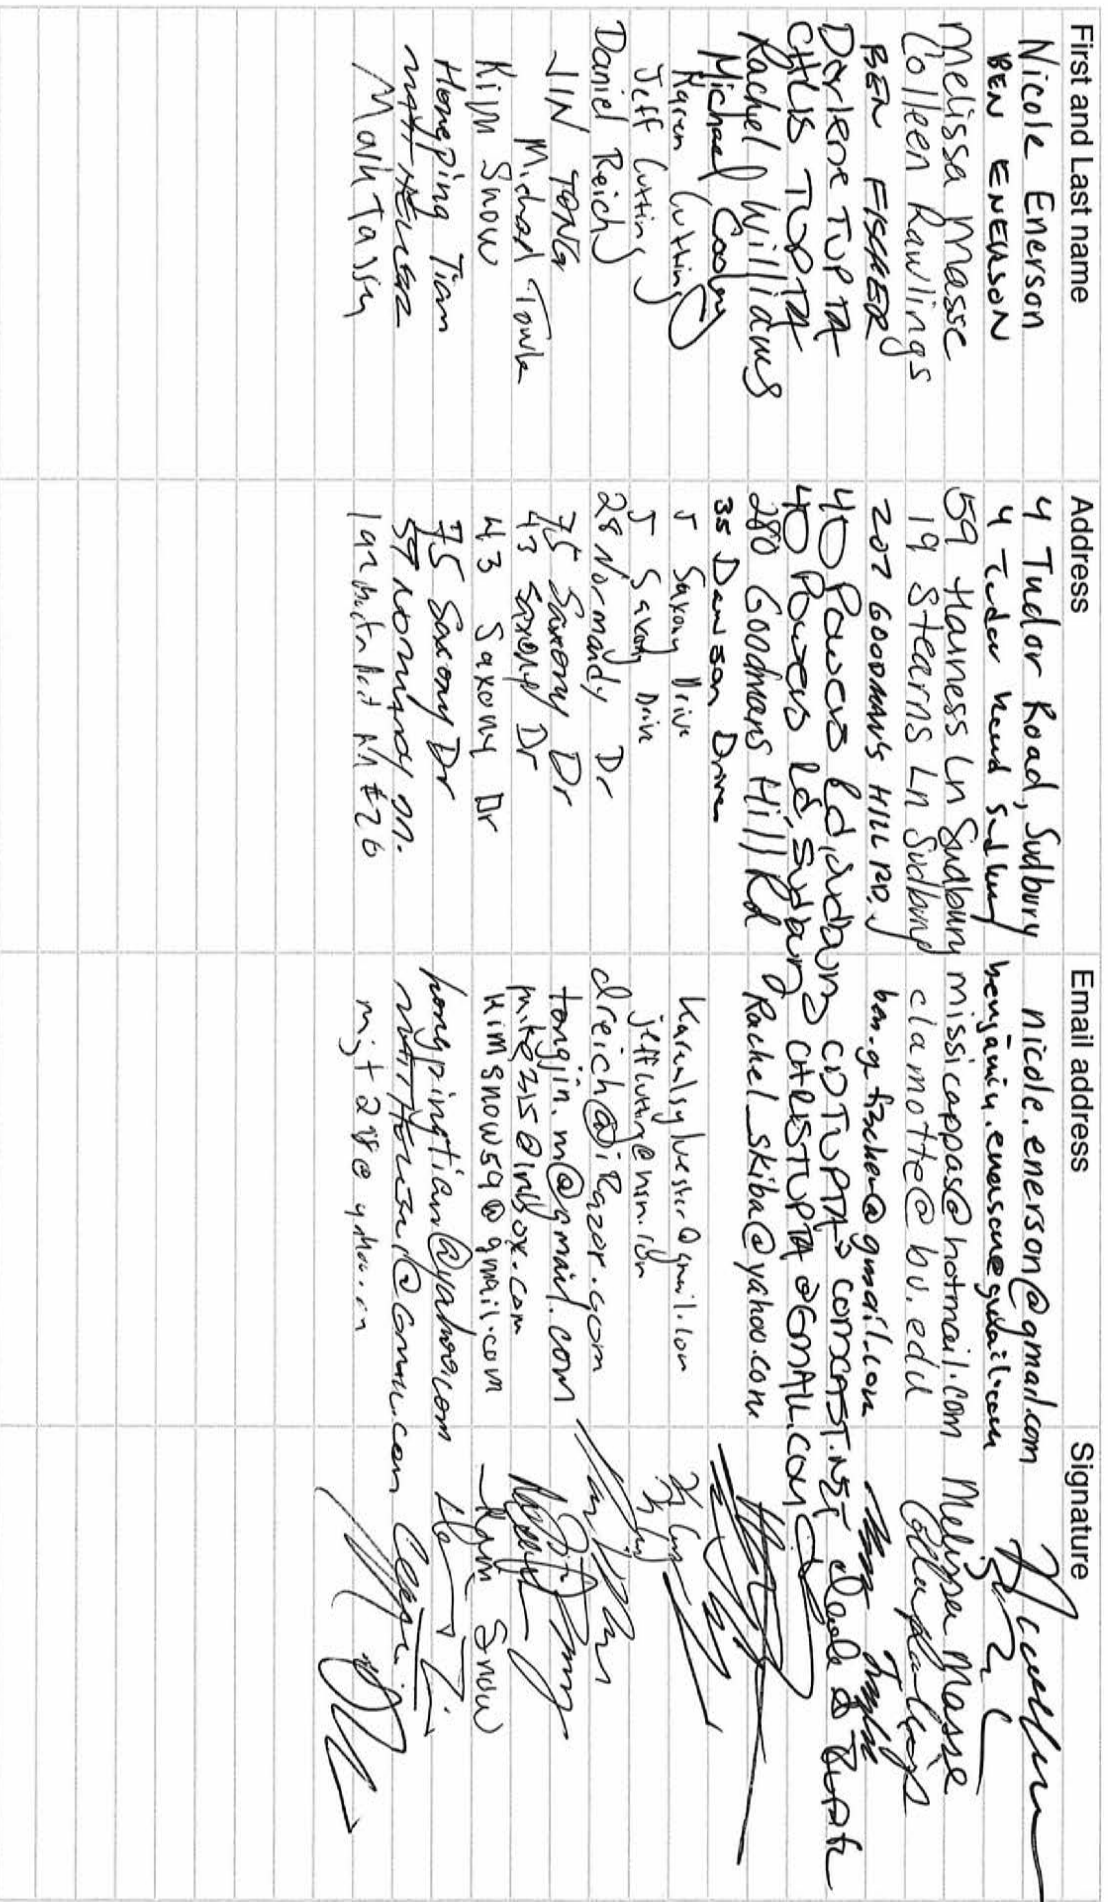 First and Last name Address Email address Signature
Nicole Enerson 4 Tudor Road, Sudbury nicole.enerson@gmail.com
BEN ENERSON 4 Tudor Road Sudbury
Melissa Masse 59 Harness Ln Sudbury missicappas@hotmail.com Melissa Masse
Colleen Rawlings 19 Stearns Ln Sudbury clamotte@bu.edu
BEN FISCHER 207 GOODMAN'S HILL RD.
Darlene TUPTA 40 Powers Rd, Sudbury CDTUPTA@COMCAST.NET
CHRIS TUPTA 40 Powers Rd, Sudbury CHRISTUPTA@GMAIL.COM
Rachel Williams 280 Goodmans Hill Rd Rachel_Skiba@yahoo.com
Michael Cooley 35 Dawson Drive
Karen Cutting 5 Saxony Drive karenlsylvester@gmail.com
Jeff Cutting 5 Saxony Drive jeffcutting@msn.com
Daniel Reich 28 Normandy Dr dreich@iRazor.com
JIN TONG 75 Saxony Dr tongjin.m@gmail.com
Michael Towle 43 Saxony Dr mike215@inbox.com
Kim Snow 43 Saxony Dr kimsnow59@gmail.com Kim Snow
Hongping Tian 75 Saxony Dr hongpingtian@yahoo.com
MATT 59 Normandy
Mark Tassy